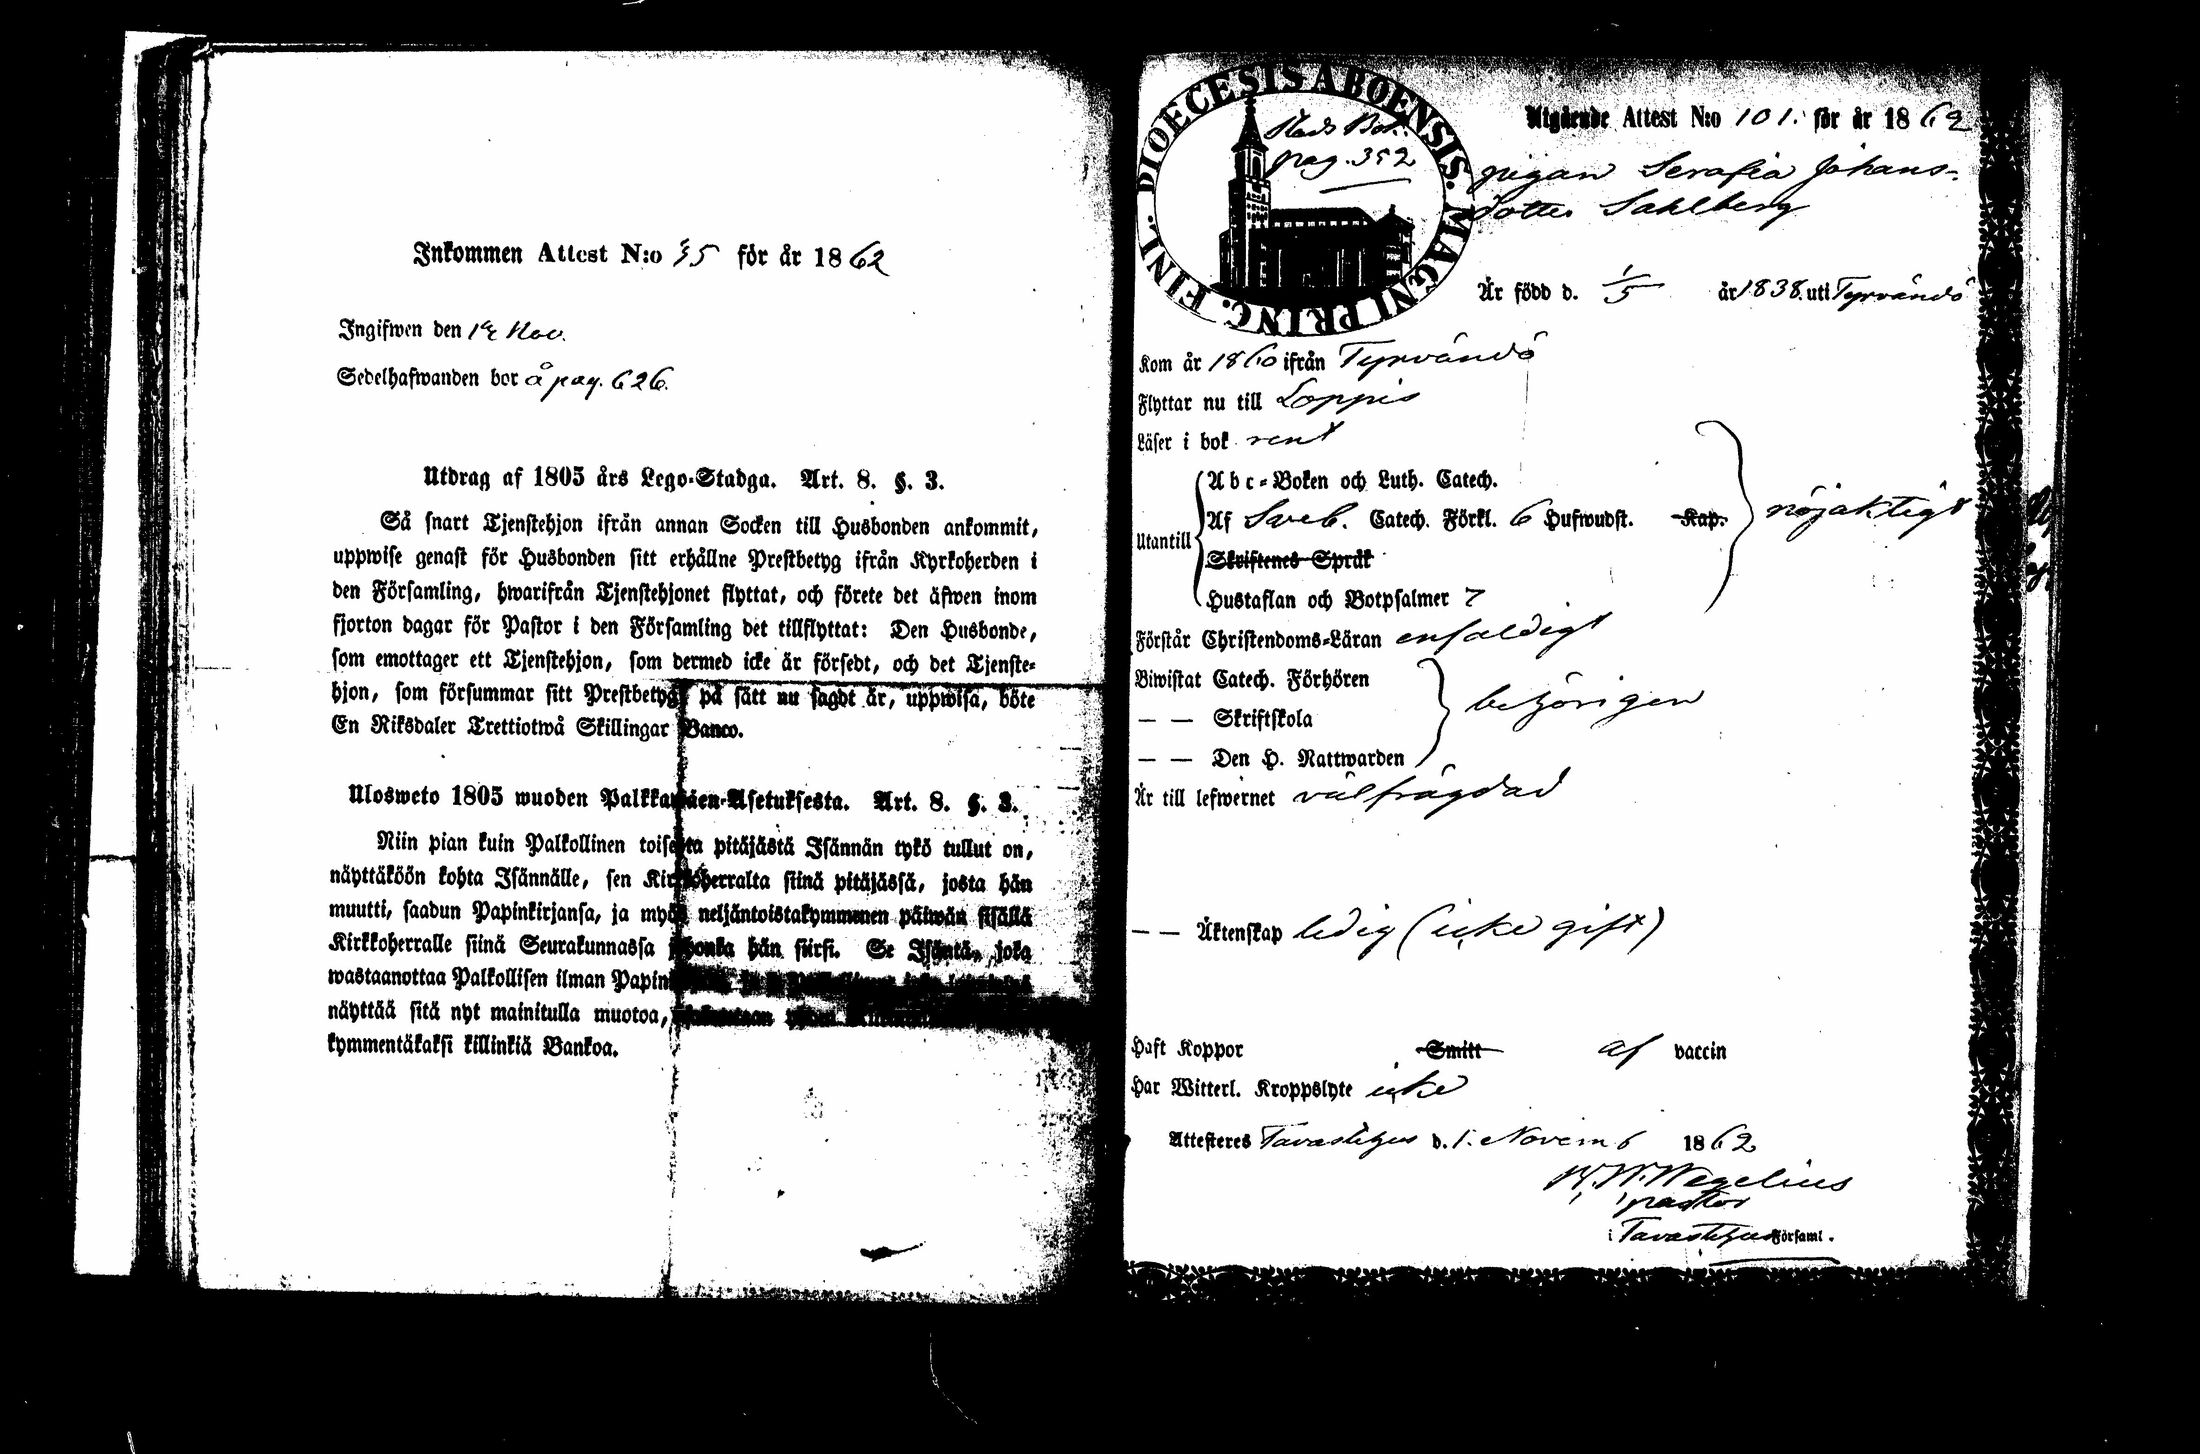 Inkommen Attest N:o 35 för år 1862
Ingifwen den 12 Nov.
Sedelhafwanden bor å pag. 626.
Utdrag af 1805 års Lego-Stadga. Art. 8. §. 3.
Så snart Tjenstehjon ifrån annan Socken till Husbonden ankommit,
uppwise genast för Husbonden sitt erhållne Prestbetyg ifrån Kyrkoherden i
den Församling, hwarifrån Tjenstehjonet flyttat, och förete det äfwen inom
fjorton dagar för Pastor i den Församling det tillflyttat: Den Husbonde,
som emottager ett Tjenstehjon, som dermed icke är försedt, och det Tjenste-
hjon, som försummar sitt Prestbetyg på sätt nu sagdt är, uppwisa, böte
En Riksdaler Trettiotwå Skillingar Banco.
Ulosweto 1805 wuoden Palkkawäen-Asetuksesta. Art. 8. §. 3.
Niin pian kuin Palkollinen toisesta pitäjästä Isännän tykö tullut on,
näyttäköön kohta Isännälle, sen Kirkkoherralta siinä pitäjässä, josta hän
muutti, saadun Papinkirjansa, ja myös neljäntoistakymmenen päiwän sisällä
Kirkkoherralle siinä Seurakunnassa johonka hän siirsi. Se Isäntä, joka
wastaanottaa Palkollisen ilman
näyttää sitä nyt mainitulla muotoa,
kymmentäkaksi killinkiä Bankoa.
FINL. DIOECESIS ABOENSIS. MAGNI PRINC.
Stads Bok.
pag. 352
Utgående Attest N:o 101. för år 1862
pigan Serafia Johans-
dotter Sahlberg
Är född d. 1/5 år 1838. uti Tyrvändö
Kom år 1860 ifrån Tyrvändö
Flyttar nu till Loppis
Läser i bok rent
Utantill
Abc-Boken och Luth. Catech.
Af Sveb. Catech. Förkl. 6 Hufwudst. Kap.
Skriftenes Språk
Hustaflan och Botpsalmer 7
nöjaktigt
Förstår Christendoms-Läran enfaldigt
Biwistat Catech. Förhören
— — Skriftskola
— — Den H. Nattwarden
behörigen
Är till lefwernet välfrägdad
— — Äktenskap ledig (icke gift)
Haft Koppor Smitt af vaccin
Har Witterl. Kroppslyte icke
Attesteres Tavastehus d. 1. Novemb 1862
Wegelius
pastor
i Tavastehus Församl.